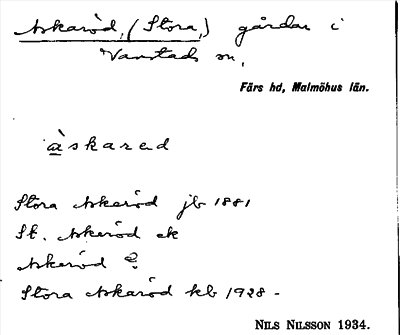 Askaröd, (Stora,) gårdar i
Vanstads sn,
Färs hd, Malmöhus län.
àskarad
Stora Askaröd jb 1881
St. Askeröd ek
Askeröd
Stora Askaröd kb 1928 -
NILS NILSSON 1934.